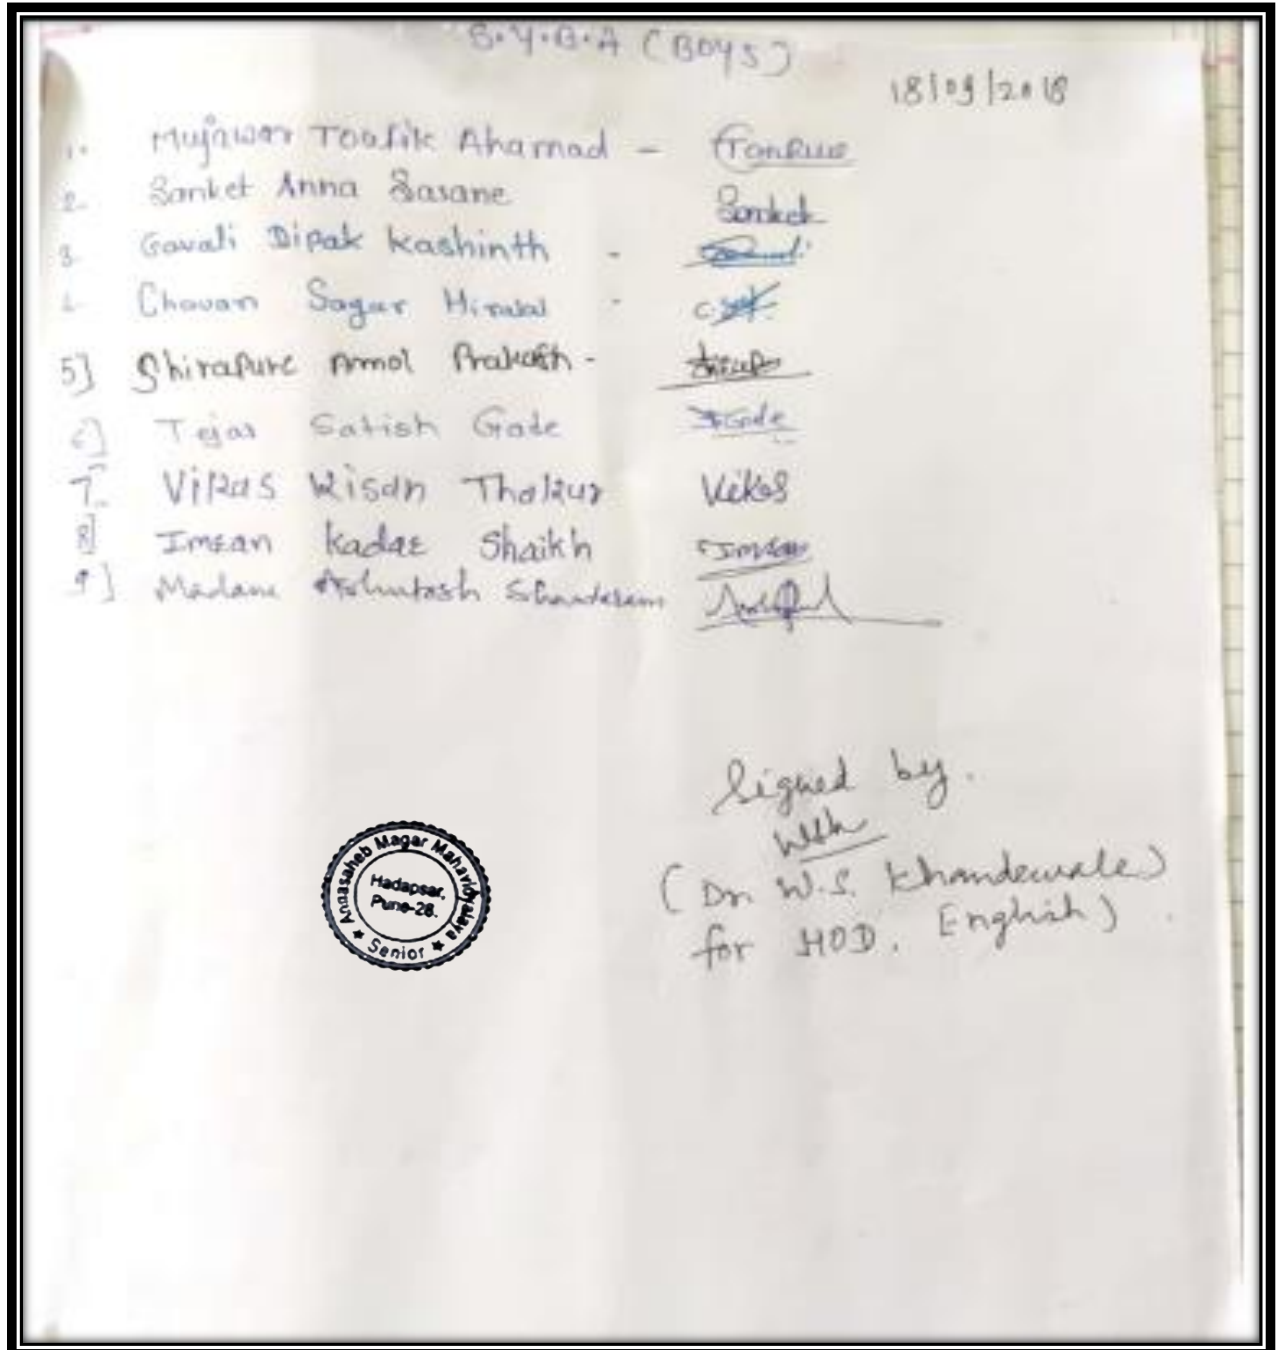 S.Y.B.A (Boys)
18/09/2018
1. Mujawar Toafik Ahamad -
2. Sanket Anna Sasane Sanket
3. Gavali Dipak Kashinth -
Chavan Sagar Hiralal -
5] Shirapure Amol Prakash -
6] Tejas Satish Gade Gade
7. Vikas Kisan Thakur Vikas
8] Imran Kadar Shaikh Imran
9] Madane Ashutosh
Signed by.
(Dr. W.S. Khandewale)
for HOD. English)
Annasaheb Magar Mahavidyalaya
Hadapsar,
Pune-28.
★ Senior ★